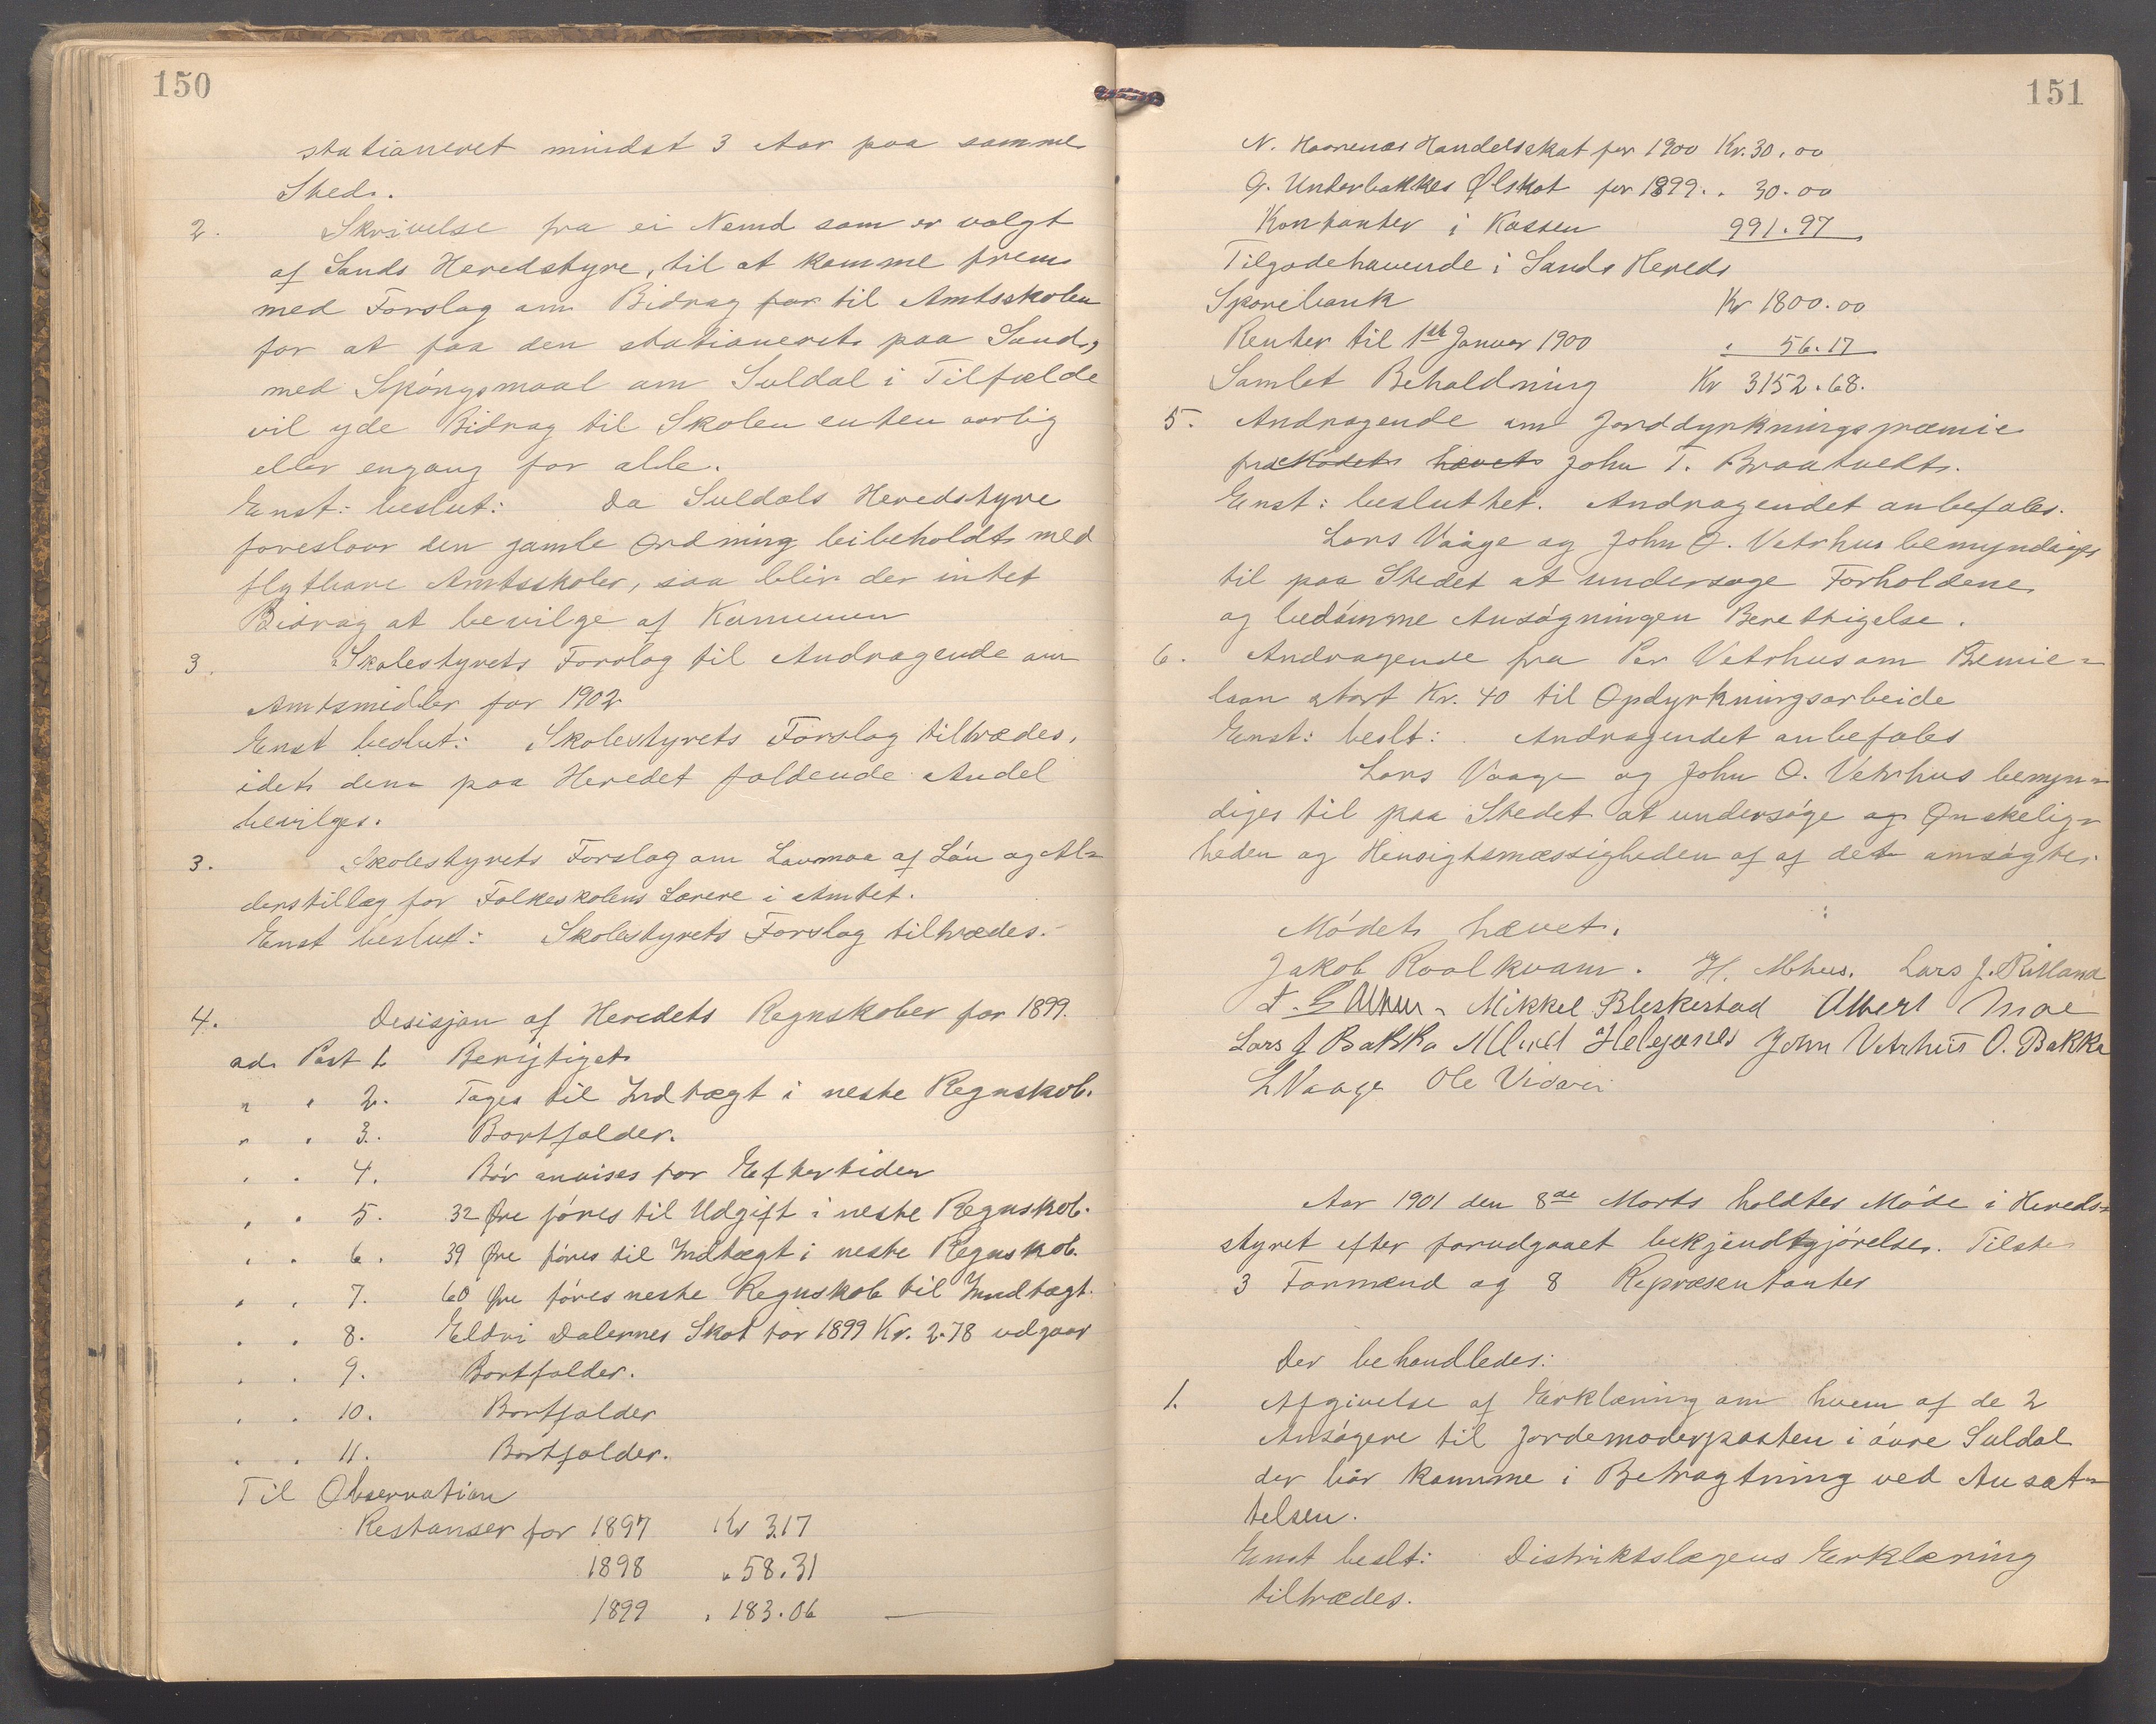 150
stationeret mindst 3 Aar paa samme
Sted.
2. Skrivelse fra ei Nemd som er valgt
af Sands Heredstyre, til at komme frem
med Forslag om Bidrag for til Amtsskolen
for at faa den stationeret paa Sand,
med Spórgsmaal om Suldal i Tilfælde
vil yde Bidrag til Skolen enten aarlig
eller engang for alle.
Enst: beslut: Da Suldals Heredstyre
foreslaar den gamle Ordning beibeholdt med
flytbare Amtsskoler, saa blir der intet
Bidrag at bevilge af Kommunen
3. Skolestyrets Forslag til Andragende om
Amtsmidler for 1902
Enst beslut: Skolestyrets Forslag tiltrædes,
idet den paa Heredet faldende Andel
bevilges.
3. Skolestyrets Forslag om Lavmaa af Lón og Al-
derstillæg for Folkeskolens Lærere i Amtet.
Enst beslut: Skolestyrets Forslag tiltrædes.
4. Desisjon af Heredets Regnskaber for 1899.
ad. Post 1. Berigtiget
" " 2. Tages til Indtægt i neste Regnskab.
" " 3. Bortfalder.
" " 4. Bór anvises for Eftertiden
" " 5. 32 Øre fóres til Udgift i neste Regnskab.
" " 6. 39 Øre fóres til Indtægt i neste Regnskab.
" " 7. 60 Øre fóres neste Regnskab til Inndtægt.
" " 8. Eldri Dalernes Skat for 1899 Kr. 2.78 udgaar
" " 9. Bortfalder.
" " 10. Bortfalder
" " 11. Bortfalder.
Til Observation
Restanser for 1897 Kr 3.17
1898 " 58.31
1899 " 183.06
151
N. Haarenæs Handelsskat for 1900 Kr. 30.00
G. Underbakkes Ølskat for 1899 " 30.00
Kontanter i Kassen 991.97
Tilgodehavende i Sands Hereds
Sparebank Kr 1800.00
Renter til 1ste Januar 1900 " 56.17
Samlet Beholdning Kr 3152.68.
5. Andragende om Jorddyrkningspræmie
fra Módet hævet John T. Braatvedt.
Enst: besluttet. Andragendet anbefales.
Lars Vaage og John O. Vetrhus bemyndiges
til paa Stedet at undersøge Forholdene
og bedómme Ansógningen Berettigelse.
6. Andragende fra Per Vetrhus om Præmie-
laan stort Kr. 40 til Opdyrkningsarbeide
Enst: beslt: Andragendet anbefales
Lars Vaage og John O. Vetrhus bemyn-
diges til paa Stedet at undersóge og Ønskelig-
heden og Hensigtsmæssigheden af af det ansógte.
Módet hævet.
Jakob Roalkvam. H. Mehus. Lars J. Rilland
Mikkel Bleskestad Albert Moe
Lars J Bakka Helgenes John Vetrhus O. Bakka
L Vaage Ole
Aar 1901 den 8de Marts holdtes Móde i Hereds-
styret efter forudgaaet bekjendtgjórelse. Tilste
3 Formænd og 8 Repræsentanter
Der behandledes:
1. Afgivelse af Erklæring om hvem af de 2
Ansógere til Jordemoderposten i óvre Suldal
der bór komme i Betragtning ved Ansæt-
telsen.
Enst beslt: Distriktslægens Erklæring
tiltrædes.